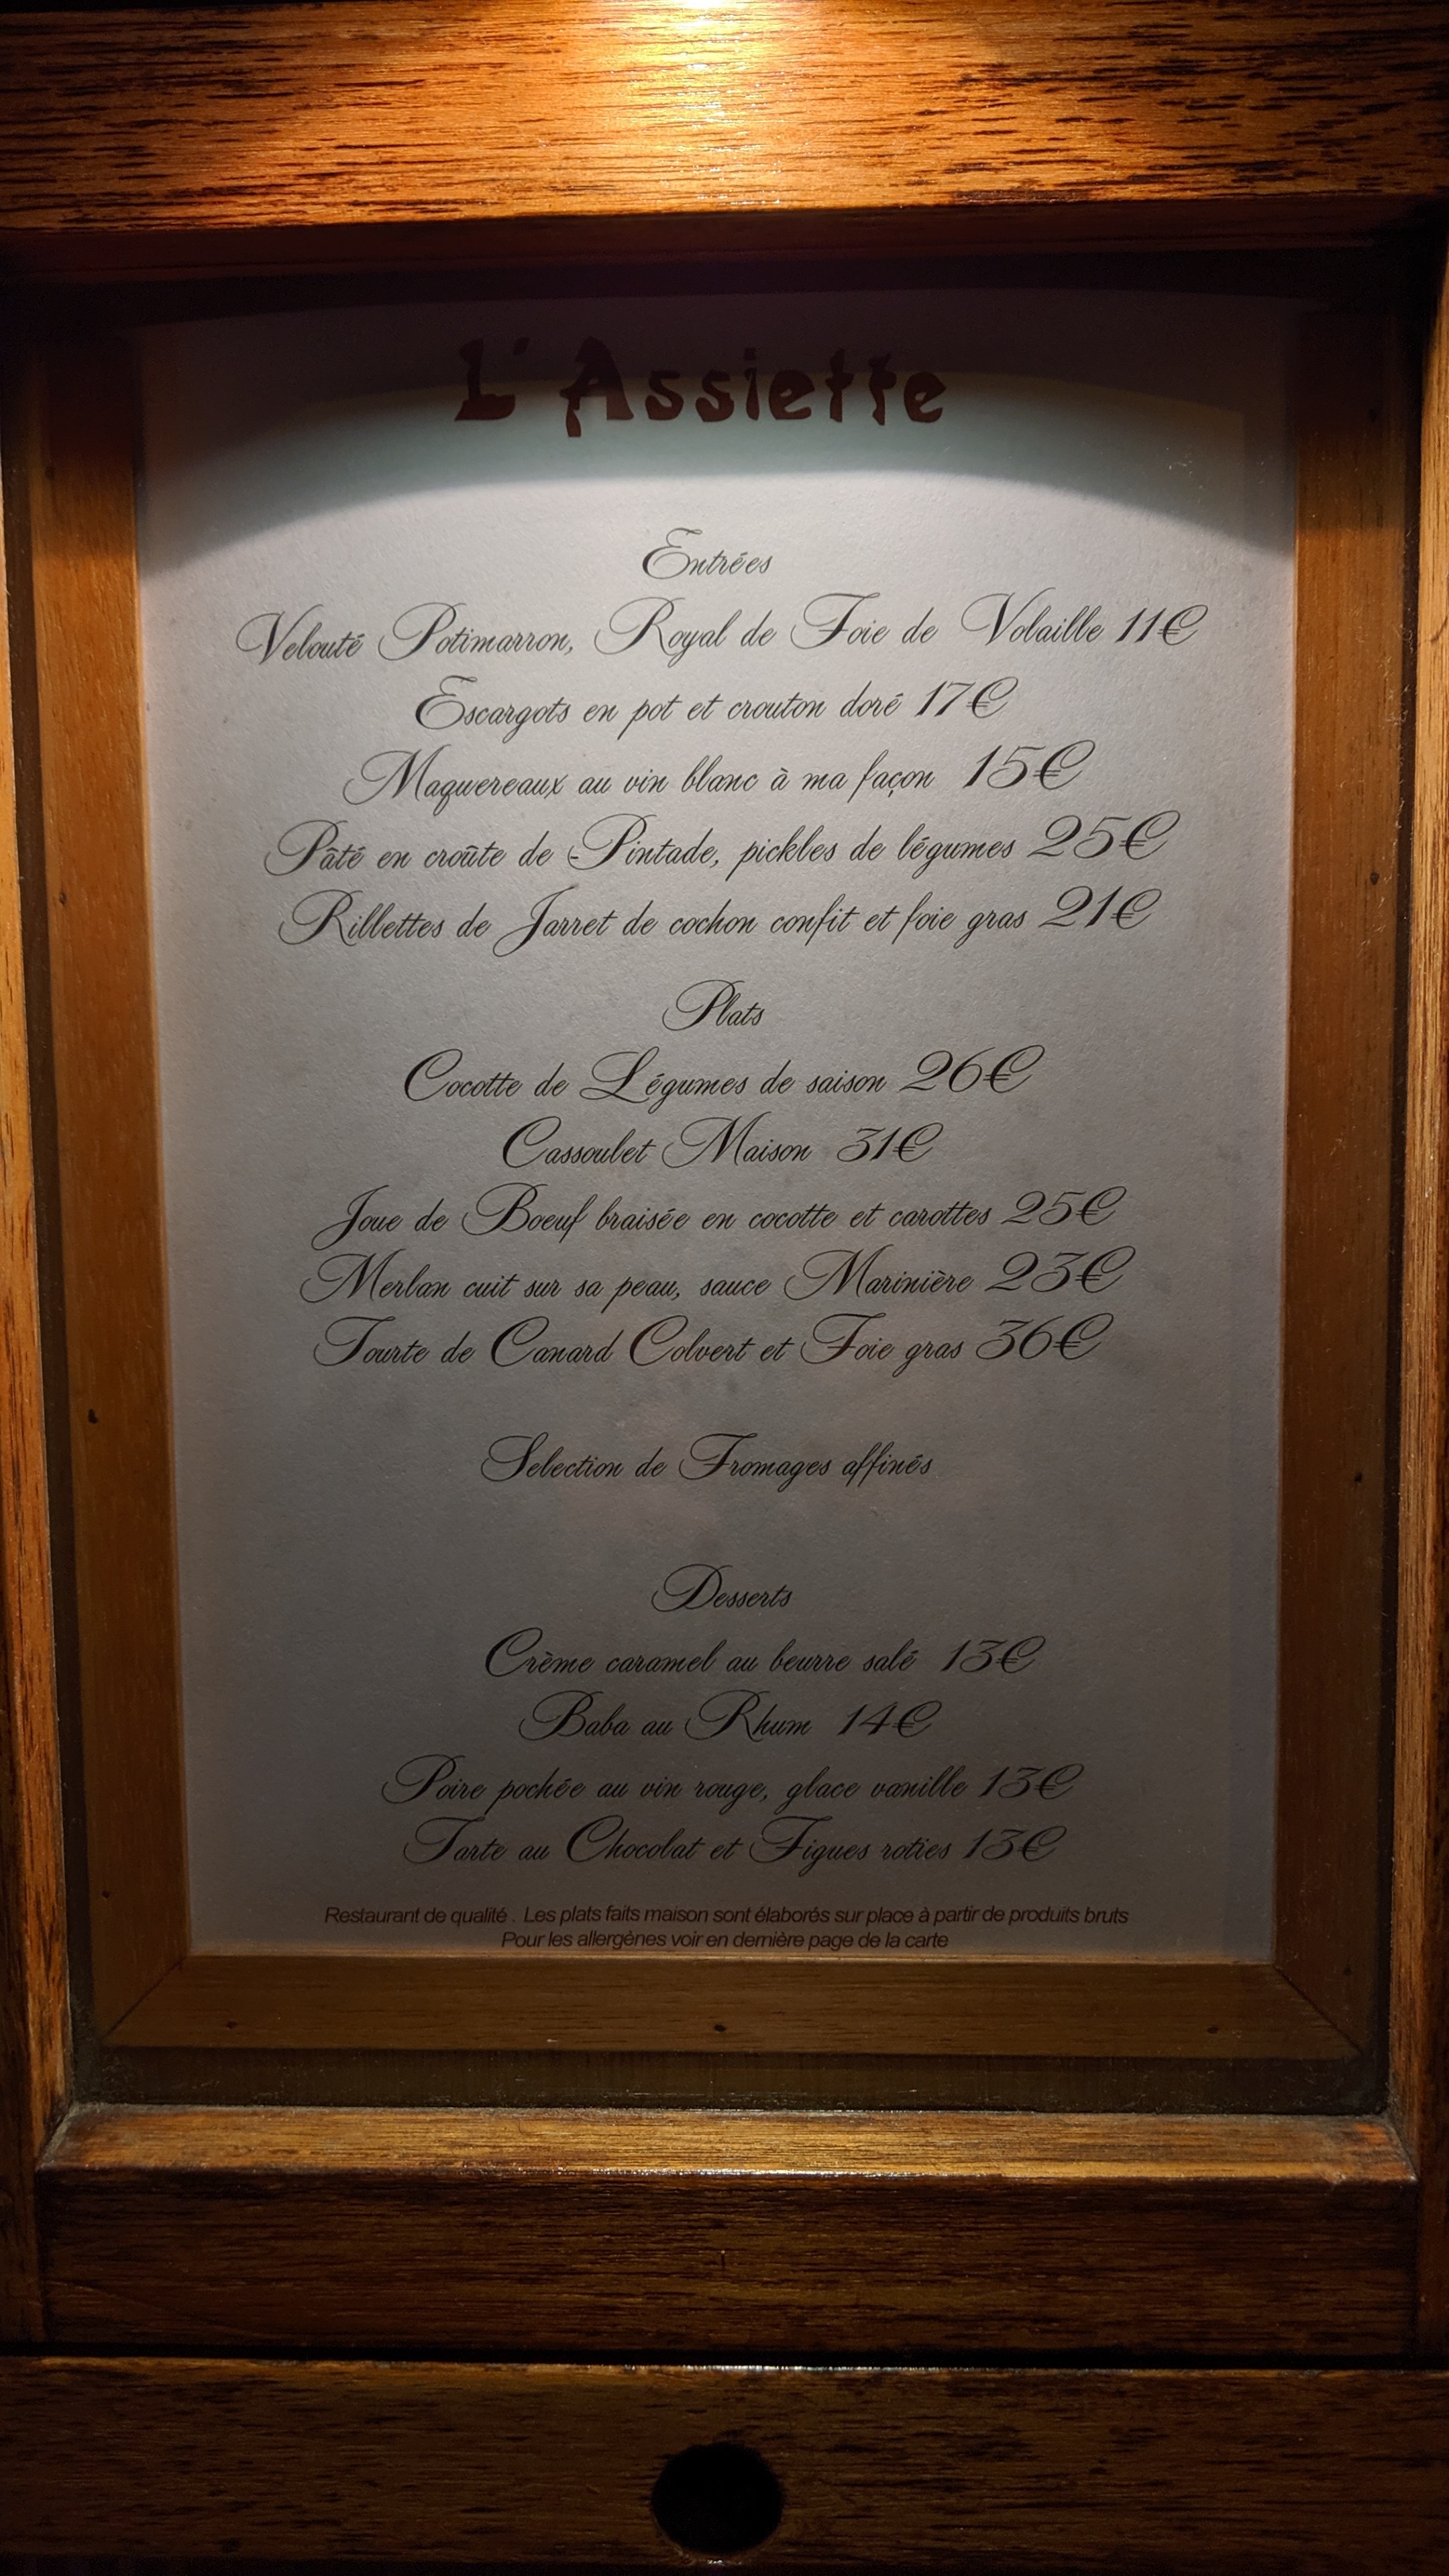 L'Assiette
Entrées
Velouté Potimarron, Royal de Foie de Volaille 11€
Escargots en pot et crouton doré 17€
Maquereaux au vin blanc à ma façon 15€
Pâté en croûte de Pintade, pickles de légumes 25€
Rillettes de Jarret de cochon confit et foie gras 21€
Plats
Cocotte de Légumes de saison 26€
Cassoulet Maison 31€
Joue de Boeuf braisée en cocotte et carottes 25€
Merlan cuit sur sa peau, sauce Marinière 23€
Tourte de Canard Colvert et Foie gras 36€
Selection de Fromages affinés
Desserts
Crème caramel au beurre salé 13€
Baba au Rhum 14€
Poire pochée au vin rouge, glace vanille 13€
Tarte au Chocolat et Figues roties 13€
Restaurant de qualité . Les plats faits maison sont élaborés sur place à partir de produits bruts
Pour les allergènes voir en dernière page de la carte